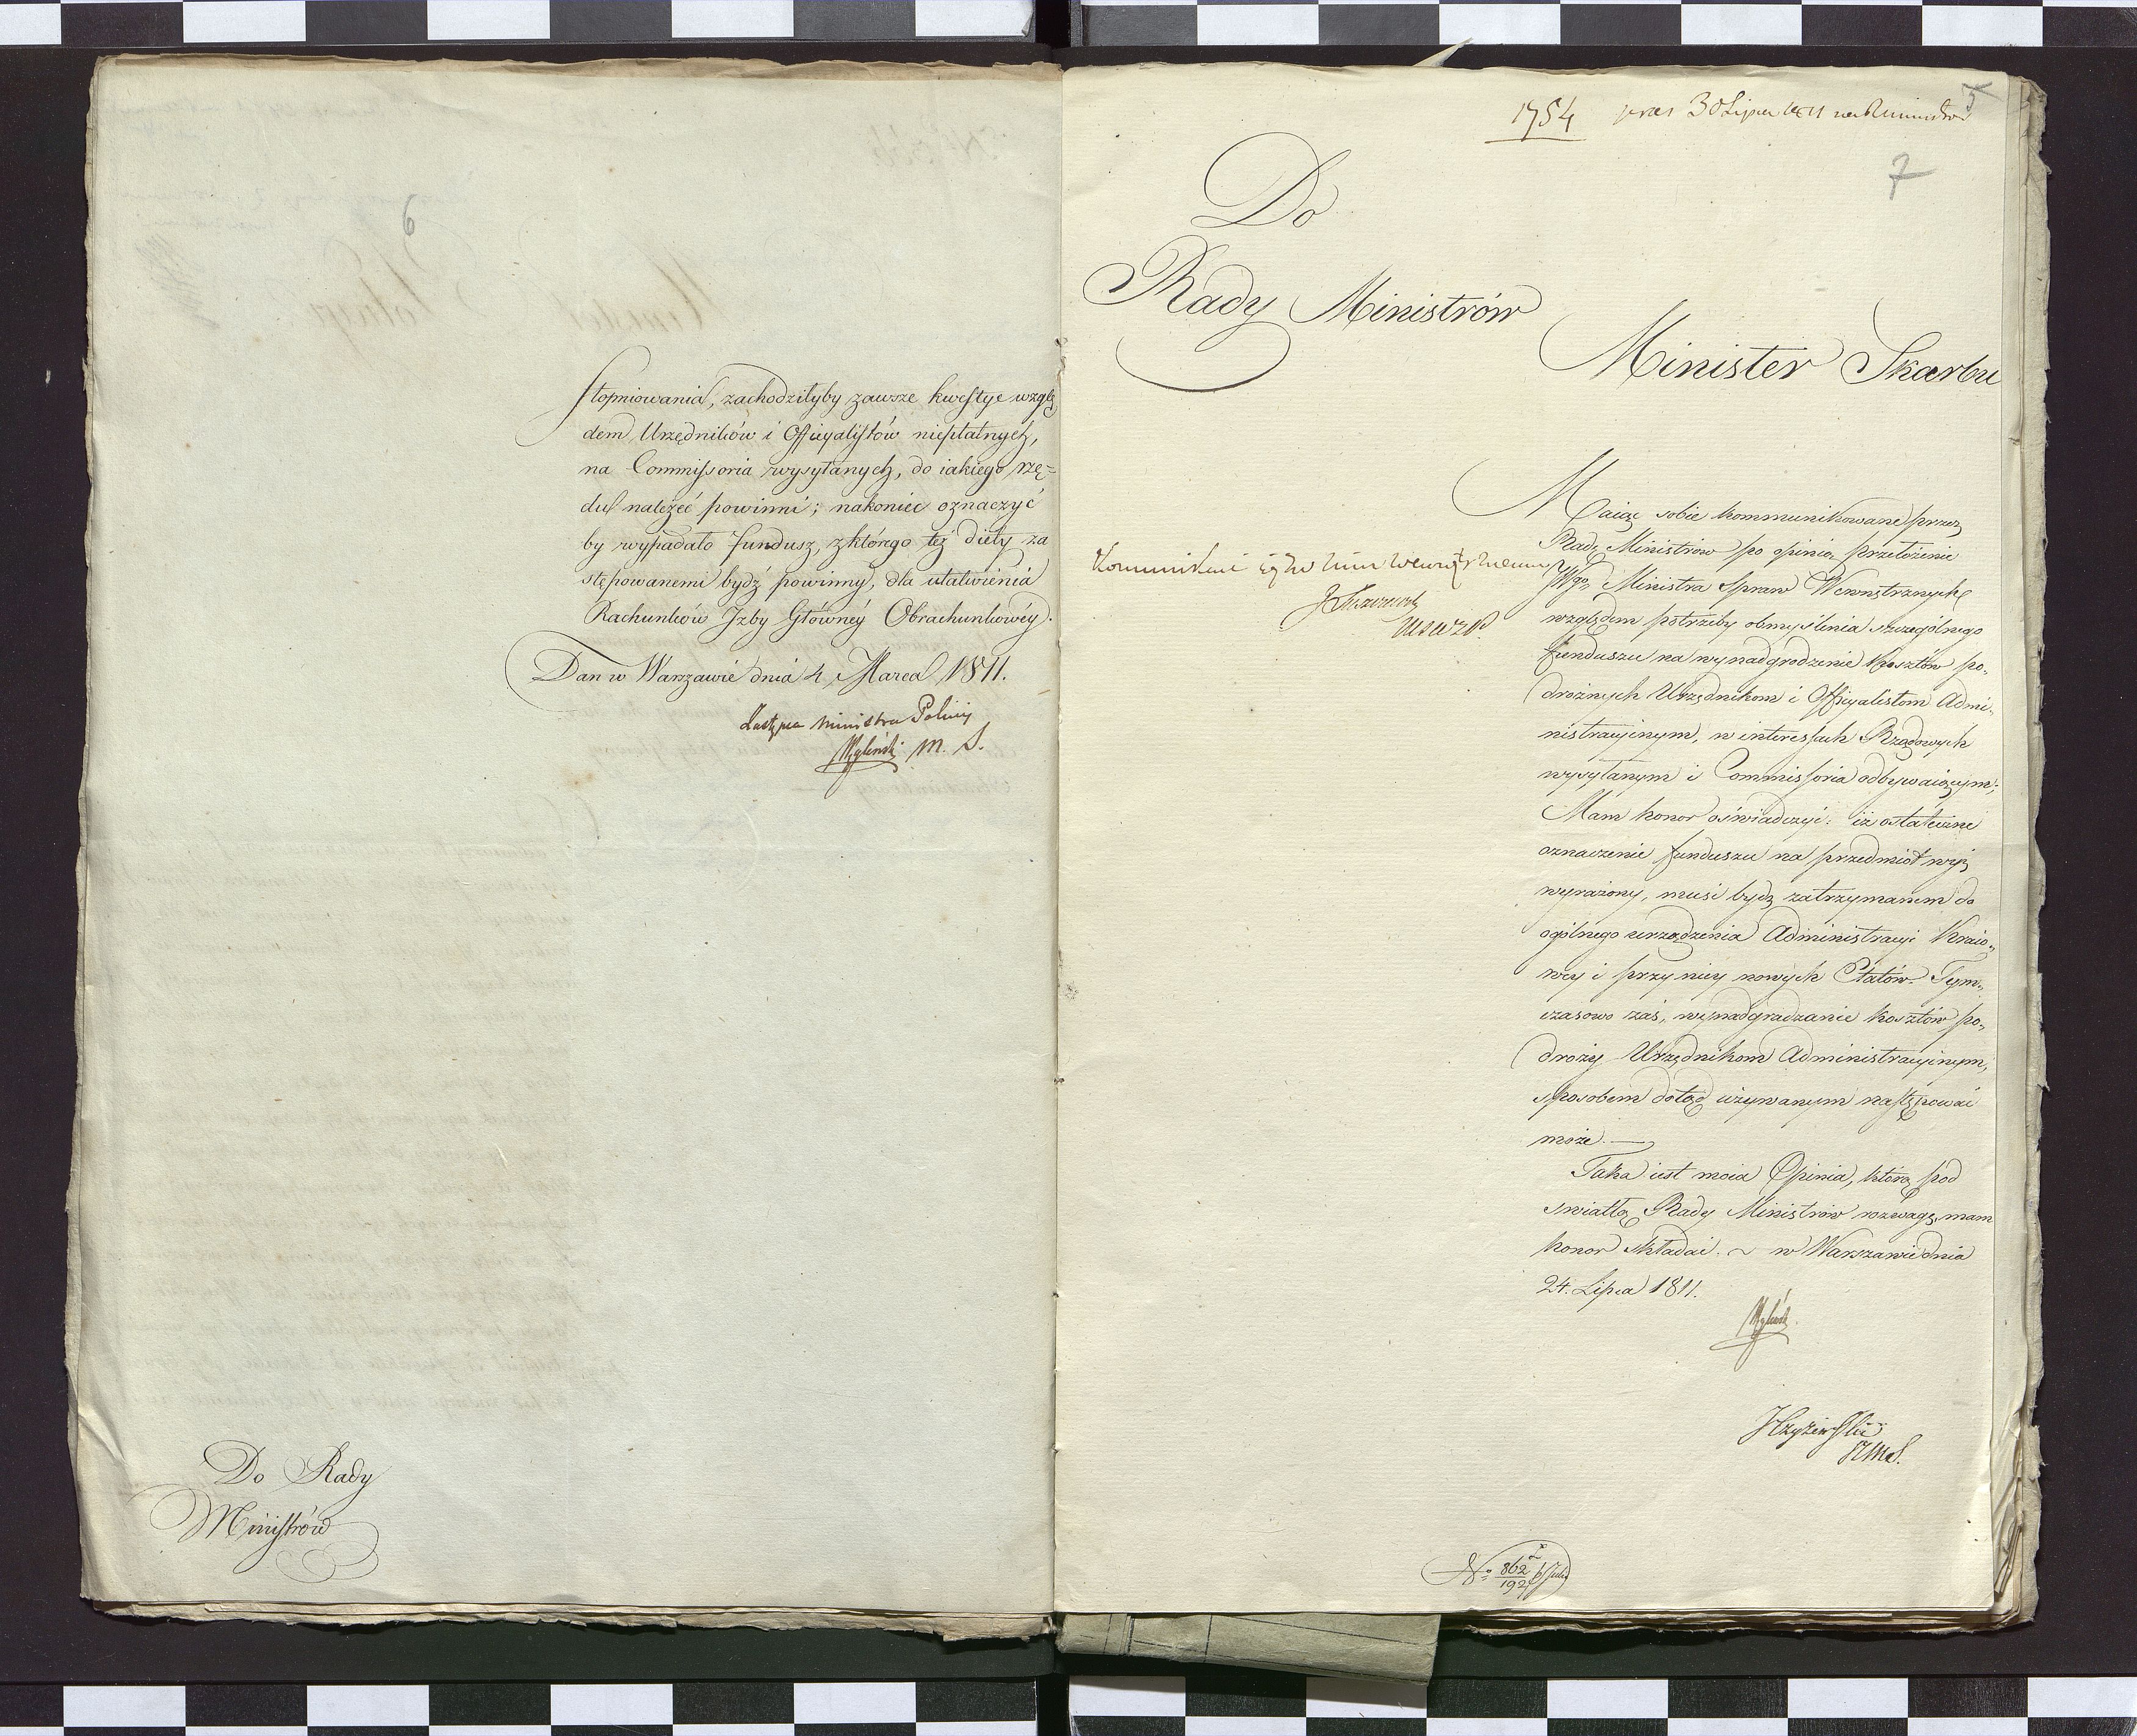 6
stopniowania, zachodziłyby zawsze kwestye wzglę
dem Urzędników i Officyalistów niepłatnych,
na Commissoria wysyłanych, do iakiego rzę=
du należeć powinni; nakoniec oznaczyć
by wypadało fundusz, z którego też diety za
stępowanemi bydź powinny, dla ułatwienia
Rachunków Izby Główney Obrachunkowéy.
Dan w Warszawie dnia 4 Marca 1811.
Zastępca Ministra Policyi
M. S.
Do Rady
Ministrów
5
1754 30 Lipca 1811
7
Do
Rady Ministrów
Minister Skarbu
Maiąc sobie kommunikowane przez
Radę Ministrów po opinią przełożenie
JWgo Ministra Spraw Wewnętrznych
względem potrzeby obmyślenia szczególnego
funduszu na wynadgrodzenie kosztów po„
drożnych Urzędnikom i Officyalistom Admi„
nistracyinym, w interessach Rządowych
wysyłanym i Commissoria odbywaiącym;
Mam honor oświadczyć: iż ostateczne
oznaczenie funduszu na przedmiot wyż
wyrażony, musi bydź zatrzymanem do
ogólnego urządzenia Administracyi Kraio„
wey i przy niey nowych Etatów. Tym„
czasowo zaś, wynadgradzanie kosztów po„
droży Urzędnikom Administracyinym,
sposobem dotąd używanym następować
może. —
Taka iest moia Opinia, którą pod
światłą Rady Ministrów rozwagę, mam
honor składać. ~ w Warszawie dnia
24. Lipca 1811.
No 862
192